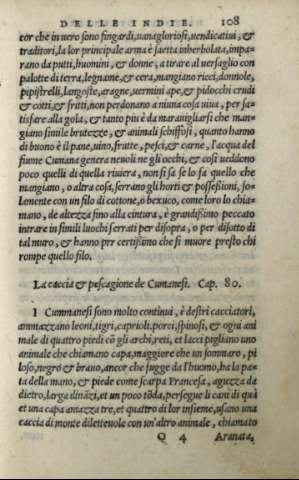 DELLE INDIE. 108
cor che in vero sono fingardi, vanagloriosi, vendicativi, &
traditori, la lor principal arma è saetta inherbolata, impa-
rano da putti, huomini, & donne, a tirare al versaglio con
palotte di terra, legname, & cera, mangiano ricci, donnole,
pipistrelli, langoste, aragne, vermini ape, & pidocchi crudi
& cotti, & fritti, non perdonano a niuna cosa viva, per sa-
tisfare alla gola, & tanto piu è da maravigliarsi che man-
giano simile bruttezze, & animali schiffosi, quanto hanno
di buono è il pane, vino, frutte, pesci, & carne, l'acqua del
fiume Cumana genera nuvoli ne gli occhi, & così veddono
poco quelli di quella riviera, non si sa se lo fa quello che
mangiano, o altra cosa, serrano gli horti & possessioni, so-
lamente con un filo di cottone, o bexuco, come loro lo chia-
mano, de altezza fino alla cintura, è grandissimo peccato
intrare in simili luochi serrati per disopra, o per disotto di
tal muro, & hanno per certissimo che si muore presto chi
rompe quello filo.
La caccia & pescagione de Cumanesi. Cap. 80.
I Cummanesi sono molto continui, è destri cacciatori,
ammazzano leoni, tigri, caprioli, porci, spinosi, & ogni ani
male di quattro piedi cō gli archi, reti, et lacci pigliano uno
animale che chiamano capa, maggiore che un sommaro, pi
loso, negro & bravo, ancor che fugge da l'huomo, ha la pa-
ta della mano, & piede come scarpa Francesa, aguzza da
dietro, larga dināzi, et un poco tōda, persegue li cani di quà
et una capa amazza tre, et quattro di lor insieme, usano una
caccia di monte dilettevole con un'altro animale, chiamato
Q 4 Aranata,